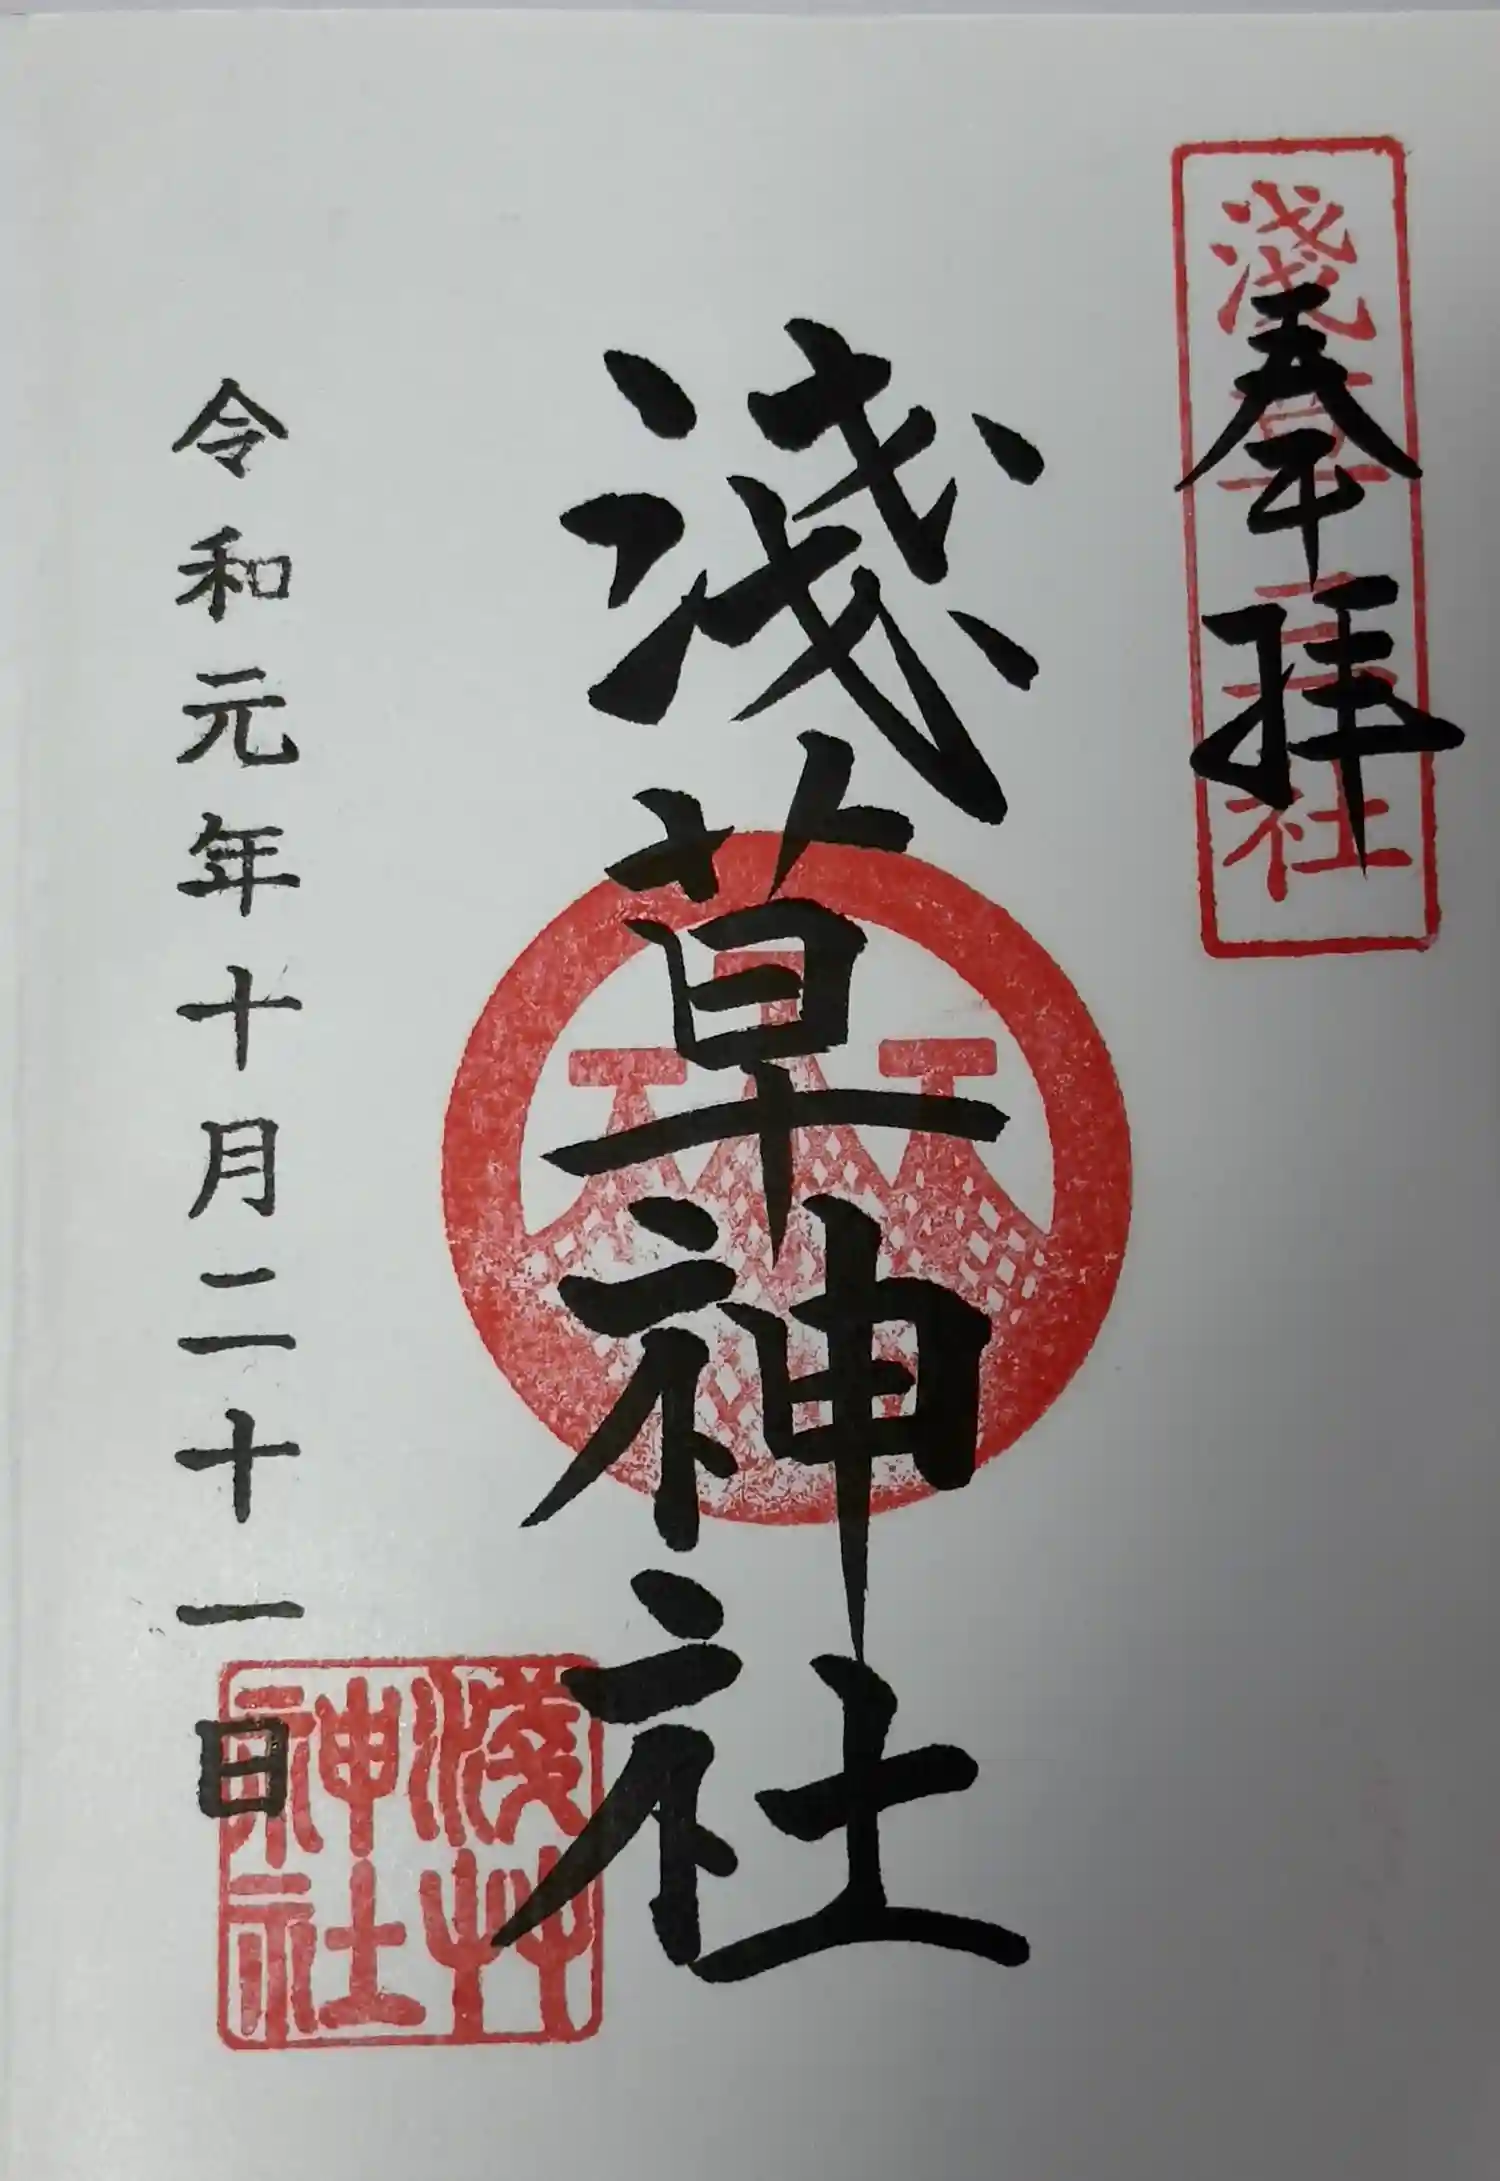 奉拝
淺草三社
淺草神社
淺艸神社
令和元年十月二十一日